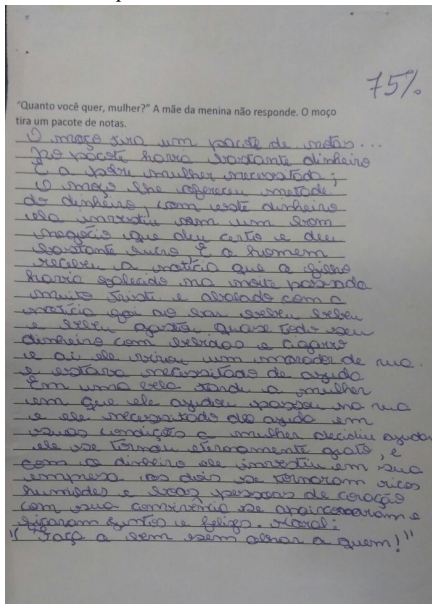 75%
"Quanto você quer, mulher?" A mãe da menina não responde. O moço
tira um pacote de notas.
O moço tira um pacote de notas...
No pacote havia bastante dinheiro
E a pobre mulher necessitada;
O moço lhe ofereceu metade
do dinheiro, com este dinheiro
ela investiu em um bom
negócio que deu certo e deu
bastante lucro E a homem
recebeu a notícia que a
havia falecido na noite passada
muito triste e abalado com a
notícia foi ao bar bebeu bebeu
e bebeu gastou quase todo seu
dinheiro com bebidas e cigarro
e ai ele virou um morador de rua.
e estava necessitado de ajuda
Em uma bela tarde a mulher
em que ele ajudou passou na rua
e ele necessitado de ajuda em
suas condição a mulher decidiu ajudar
ele se tornou eternamente grato, e
com o dinheiro ele investiu em sua
empresa os dois se tornaram ricos
humildes e boas pessoas de coração
com sua convivência se apaixonaram e
ficaram juntos e felizes. Moral:
"Faça o bem sem olhar a quem!"